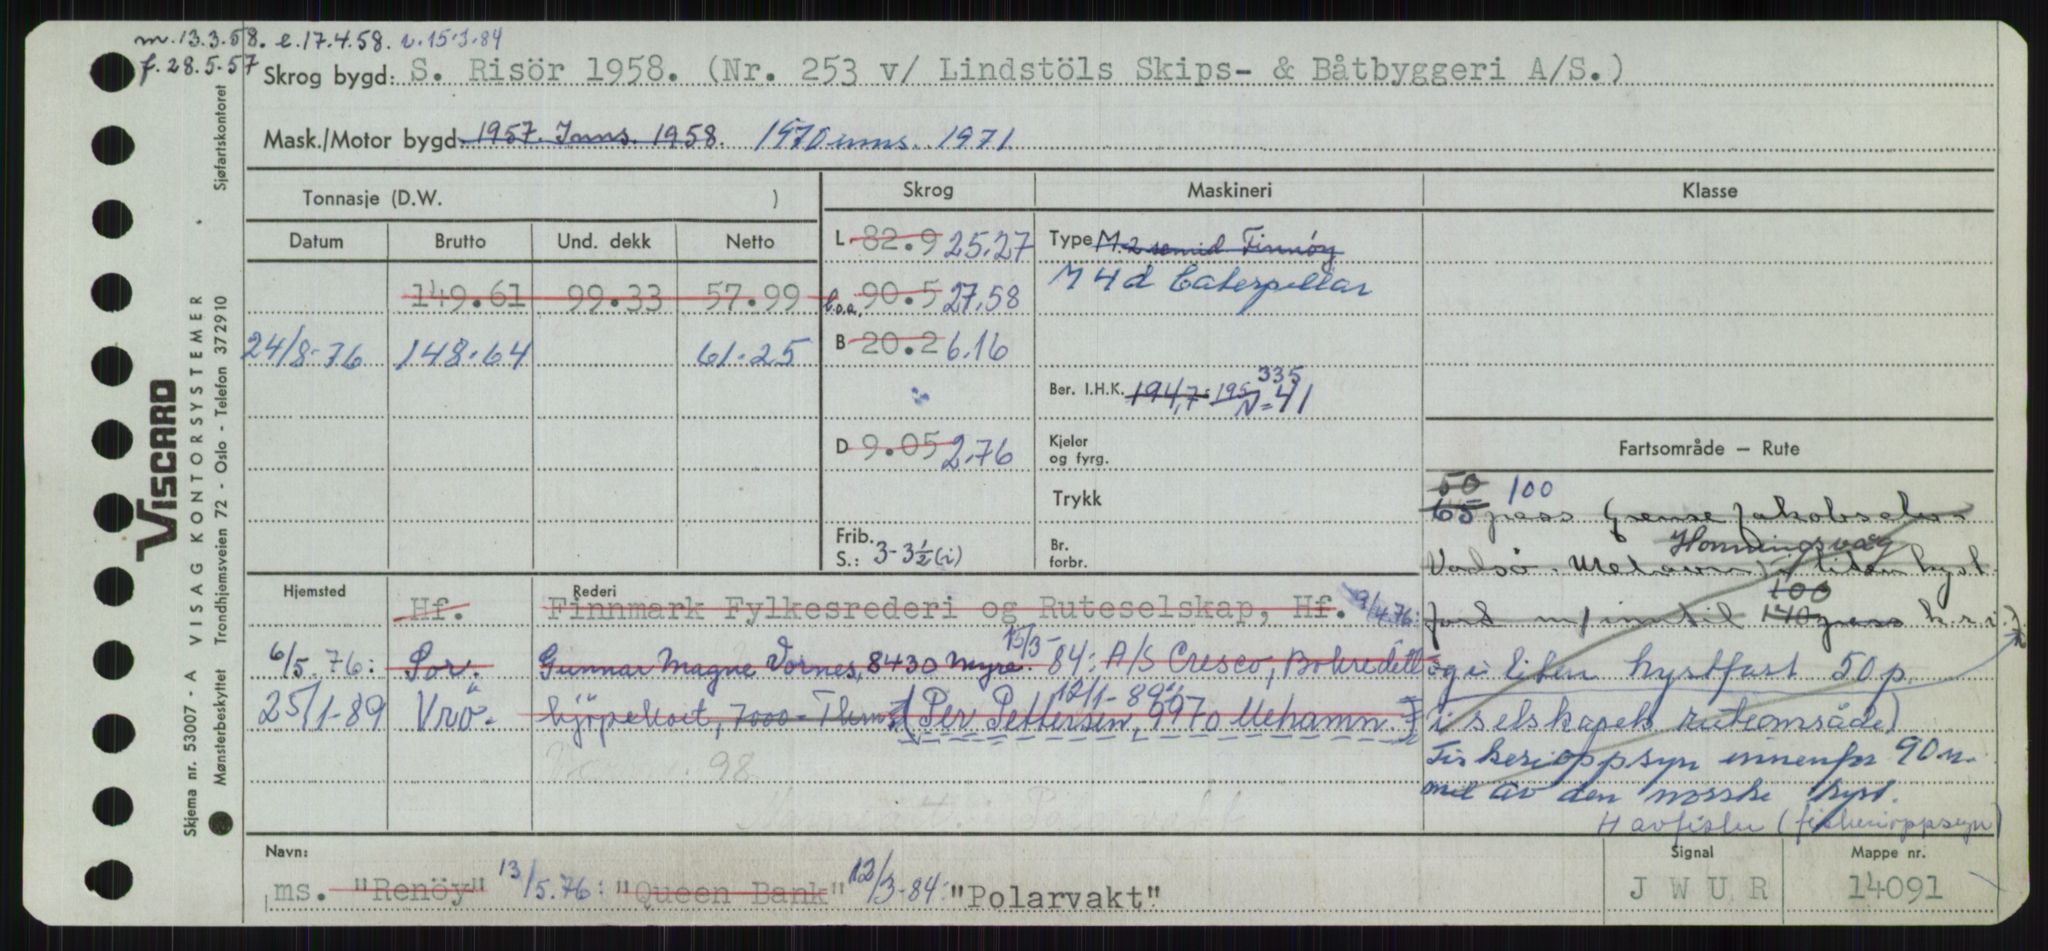 m. 13.3.58. e. 17.4.58. u. 15.3.84
f. 28.5.57
Skrog bygd: S. Risör 1958. (Nr. 253 v/ Lindstöls Skips- & Båtbyggeri A/S.)
Mask./Motor bygd: 1957. Inns. 1958. 1970 inns. 1971
Tonnasje (D.W. )
Skrog Maskineri Klasse
Datum Brutto Und. dekk Netto
L. 82.9 25.27 Type M. 2 semid Finnöy
M 4 d Caterpillar
149.61 99.33 57.99 l.o.a. 90.5 27.58
24/8-76 148.64 61.25 B 20.2 6.16
335
Ber. I.H.K. 194,7 195 N=41
D 9.05 2.76 Kjeler
og fyrg.
Trykk
Frib.
S.: 3-3½ (i) Br.
forbr.
Fartsområde – Rute
50 100
65 pass Grense Jakobselv
Honningsvåg
Vadsö - Mehamn liten kyst
100
fart m/inntil 140 pass h.r.i.
og i liten kystfart 50 p.
i selskapets ruteområde)
Fiskerioppsyn innenfor 90 n.
mil av den norske kyst.
Havfiske (fiskerioppsyn)
Hjemsted Rederi
Hf. Finnmark Fylkesrederi og Ruteselskap, Hf. 9/4.76:
6/5.76: Sor. Gunnar Magne Vornes, 8430 Myre. 15/3-84: A/S Cresco, Bokreditt
25/1-89 Vrö. kjöpekort, 7000 - Thm. 12/1-89: (Per Pettersen, 9970 Mehamn.)
98
Navn:
ms. "Renöy" 13/5.76: "Queen Bank" 12/3-84: "Polarvakt"
Signal
J W U R
Mappe nr.
14091
VISCARD
VISAG KONTORSYSTEMER
Skjema nr. 53007 - A
Mønsterbeskyttet Trondhjemsveien 72 - Oslo - Telefon 372910 Sjøfartskontoret